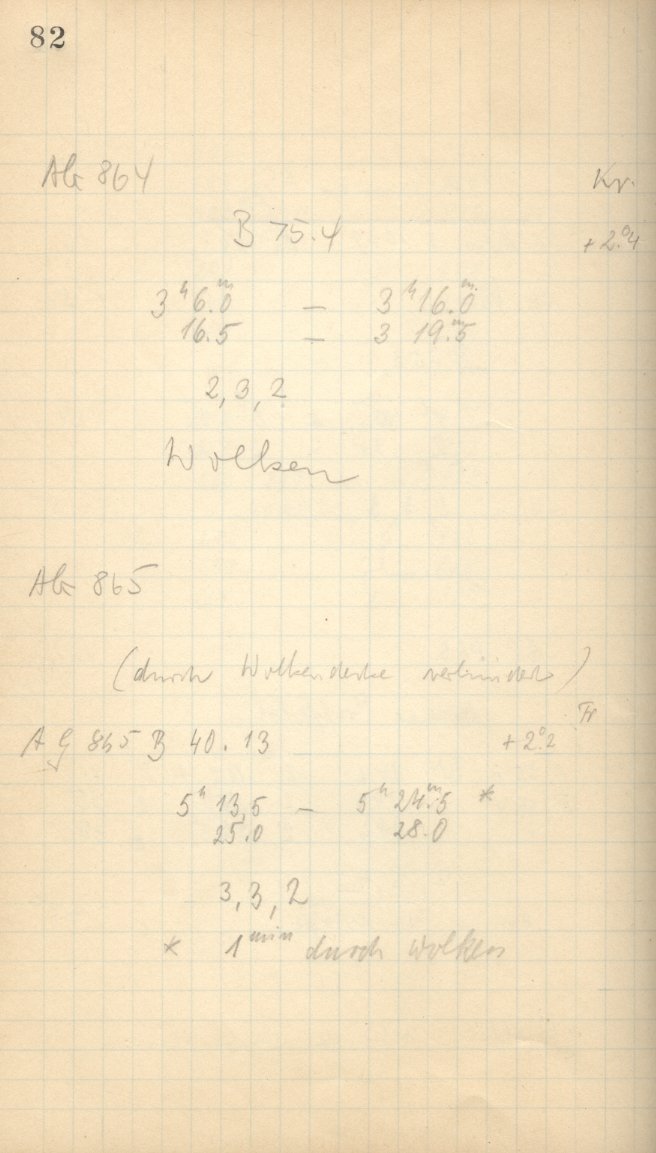 82
AG 864 Kr.
B 75.4 +2.°4
3ʰ6.ᵐ0 — 3ʰ16.ᵐ0
16.5 — 3 19.ᵐ5
2, 3, 2
Wolken
AG 865
(durch Wolkendecke verhindert)
Fr
AG 865 B 40.13 +2.°2
5ʰ 13,5 — 5ʰ 24.ᵐ5 *
25.0 28.0
3, 3, 2
* 1ᵐⁱⁿ durch Wolken